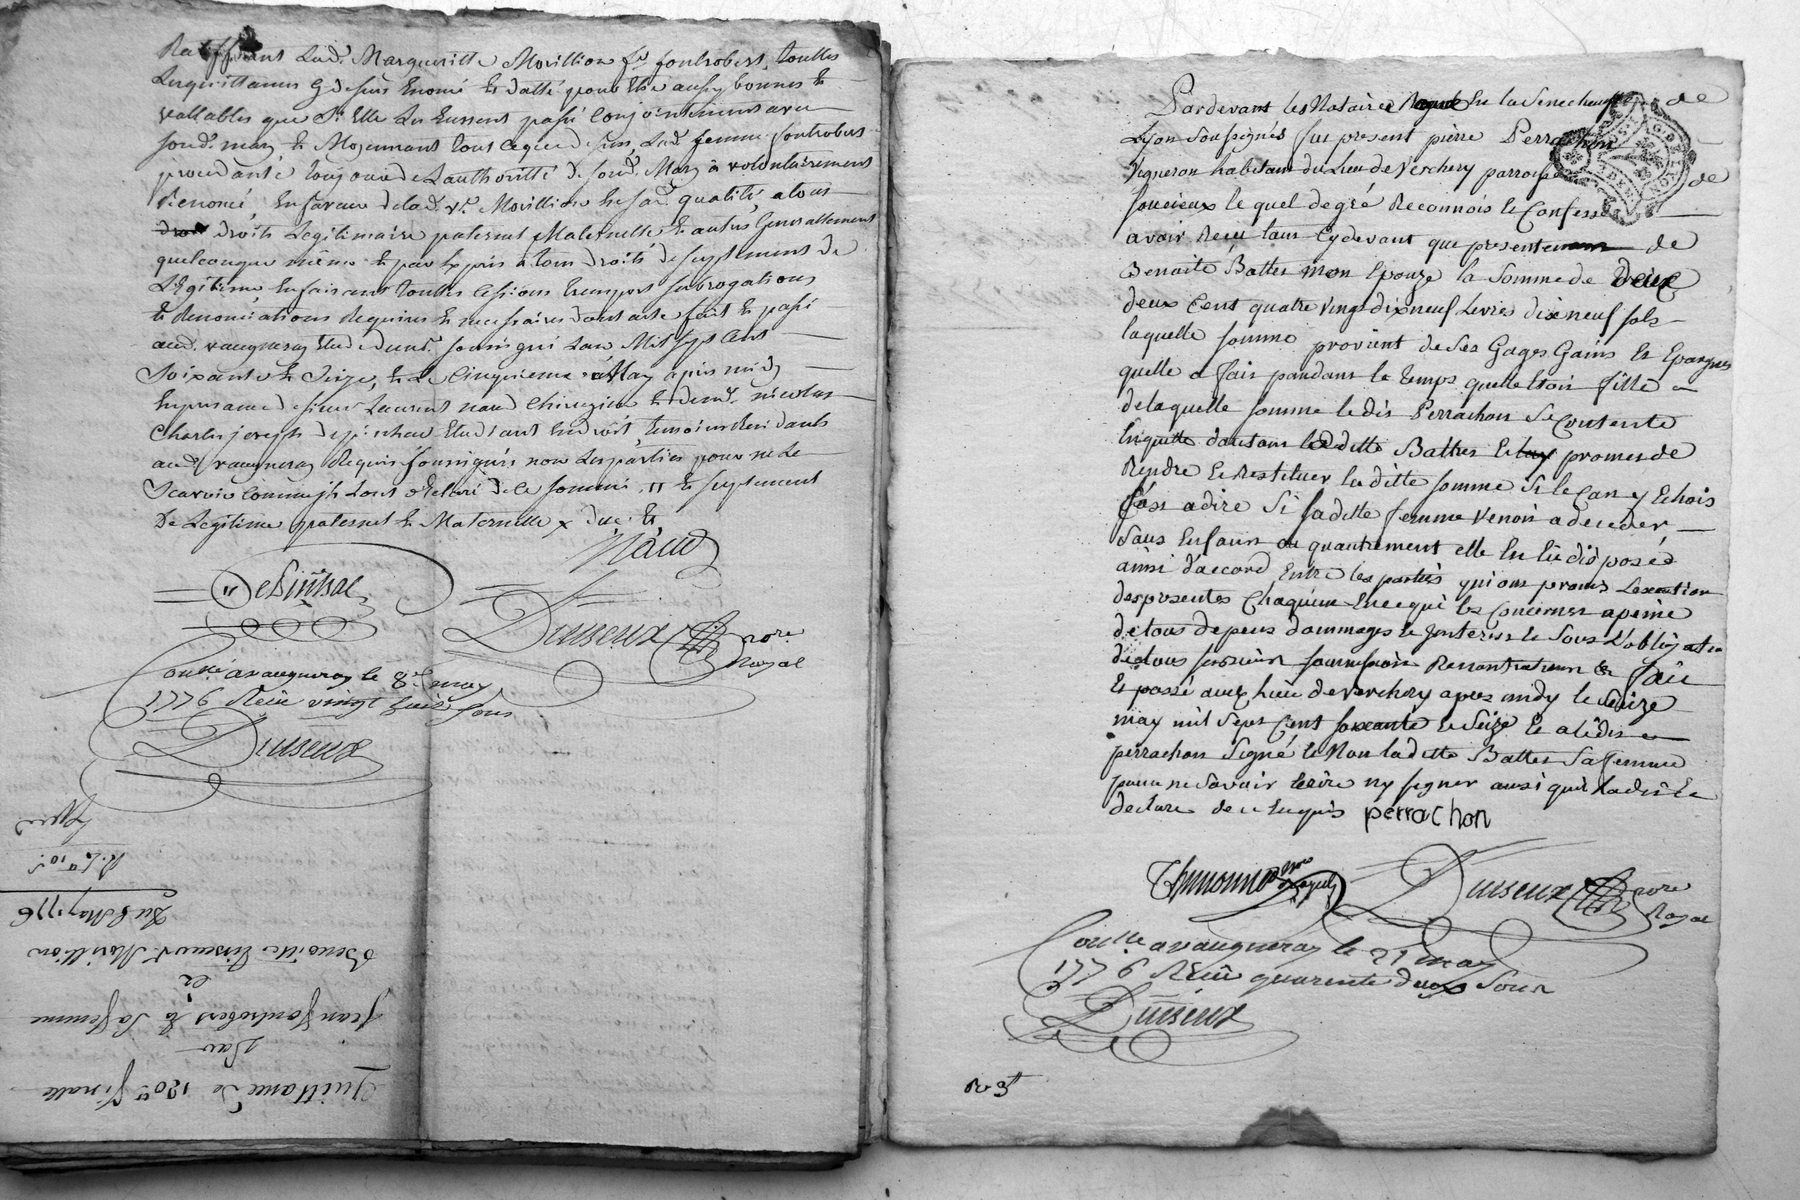 Ratiffiant lad. Margueritte Morillion fe fontrobert, touttes
les quittances cy dessus Enoncé & datté pour Etre aussy bonnes &
vallables que si Elle les Eussent passé Conjointement avec
sond. mary & Moyennant tout ce que dessus, lad. femme fontrobert
procedante toujours de L'authorité de sond. Mary à volontairement
Renoncé En faveur de lad. ve. Morillion En sad. qualité, a tous
droits Legitimaire paternel Maternelle & autres Generallement
quelconque même & par Exprès à tous droits de suplement de
Legitime En faisant touttes Cessions transport subrogations
& Renonciations Requises & necessaires dont acte fait & passé
aud. vaugneray Etude du nore. soussigné L'an Mil sept Cent
Soixante & Seize, & Le Cinquieme May après midy
En presence de sieur Laurent naud Chirurgien & de mr. nicolas
Charles joseph de Etudiant En droit, temoins Residants
aud. vaugneray Requis soussignés non Les parties pour ne Le
Scavoir Comme ils L'ont déclaré de Ce sommé, & suplement
De Legitime paternel & Maternelle x due &
Naud
Duiseux nore
Royal
Conlé a vaugneray le 8e. may
1776 Reçu vingt huit sous
Duiseux
Quittance de 120tt finalle
Par
Jean fontrobert & Sa femme
à
Benoitte ve. Morillion
Du 5 May 1776
Pardevant les Notaires Royaux En la Senechaussée de
Lyon Soussignés fut present pierre Perrachon
Vigneron habitant du lieu de Verchery parroisse de
soucieux le quel de gré Reconnois & Confesse
avoir Reçu tant Cy devant que presentement de
Benoite Battes mon Epouze la Somme de Deux
deux Cent quatre vingt dix neuf Livres dix neuf sols
laquelle somme provient de Ses Gages Gains & Epargnes
quelle a fais pandant le temps quelle Etois fille
de laquelle somme le dis Perrachon Se Contente
En quitte d'autant ladditte Battes & luy promes de
Rendre & Restituer la ditte somme Si le Cas y Echois
C'est a dire Si sa ditte femme venois a deceder
Sans Enfans ou quautrement elle En Eu disposée
ainsi d'accord Entre les parties qui ont promis L'execution
des presentes Chaqu'une En ce qui les Concernes a peine
de tous depens dommages & Jnterest & Sous L'obligation
de tous soumission Renontiations & Fait
& passé aud. lieu de verchery apres midy le seize
may mil Sept Cent soixante & Seize & a le dis
perrachon Signé & Non la ditte Battes Sa femme
pour ne Savoir Ecrire ny signer ainsi quil L'a dis &
declare de ce Enquis perrachon
Thimonnier nore
royal
Duiseux nore
Royal
Conlle a vaugneray le 21 may
1776 Reçu quarente deux Sous
Duiseux